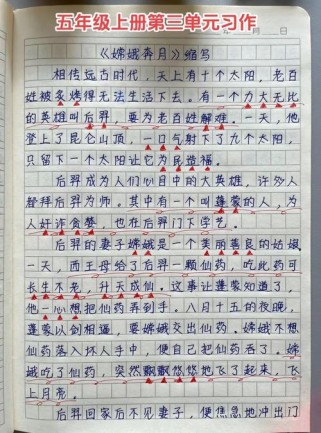 五年级上册第三单元习作
年 月 日
《嫦娥奔月》缩写
相传远古时代，天上有十个太阳，老百
姓被炙烤得无法生活下去。有一个力大无比
的英雄叫后羿，要为老百姓解难。一天，他
登上了昆仑山顶，一口气射下了九个太阳，
只留下一个太阳让它为民造福。
后羿成为人们心目中的大英雄，许多人
登拜后羿为师。其中有一个叫蓬蒙的人，为
人奸诈贪婪，也在后羿门下学艺。
后羿的妻子嫦娥是一个美丽善良的姑娘
一天，西王母给了后羿一颗仙药，吃此药可
长生不老，升天成仙。这事让蓬蒙知道了，
他一心想把仙药弄到手。八月十五的夜晚，
蓬蒙以剑相逼，要嫦娥交出仙药。嫦娥不想
仙药落入坏人手中，便自己把仙药吞了。嫦
娥吃了仙药，突然飘飘悠悠地飞了起来，飞
上月亮。
后羿回家后不见妻子，便焦急地冲出门